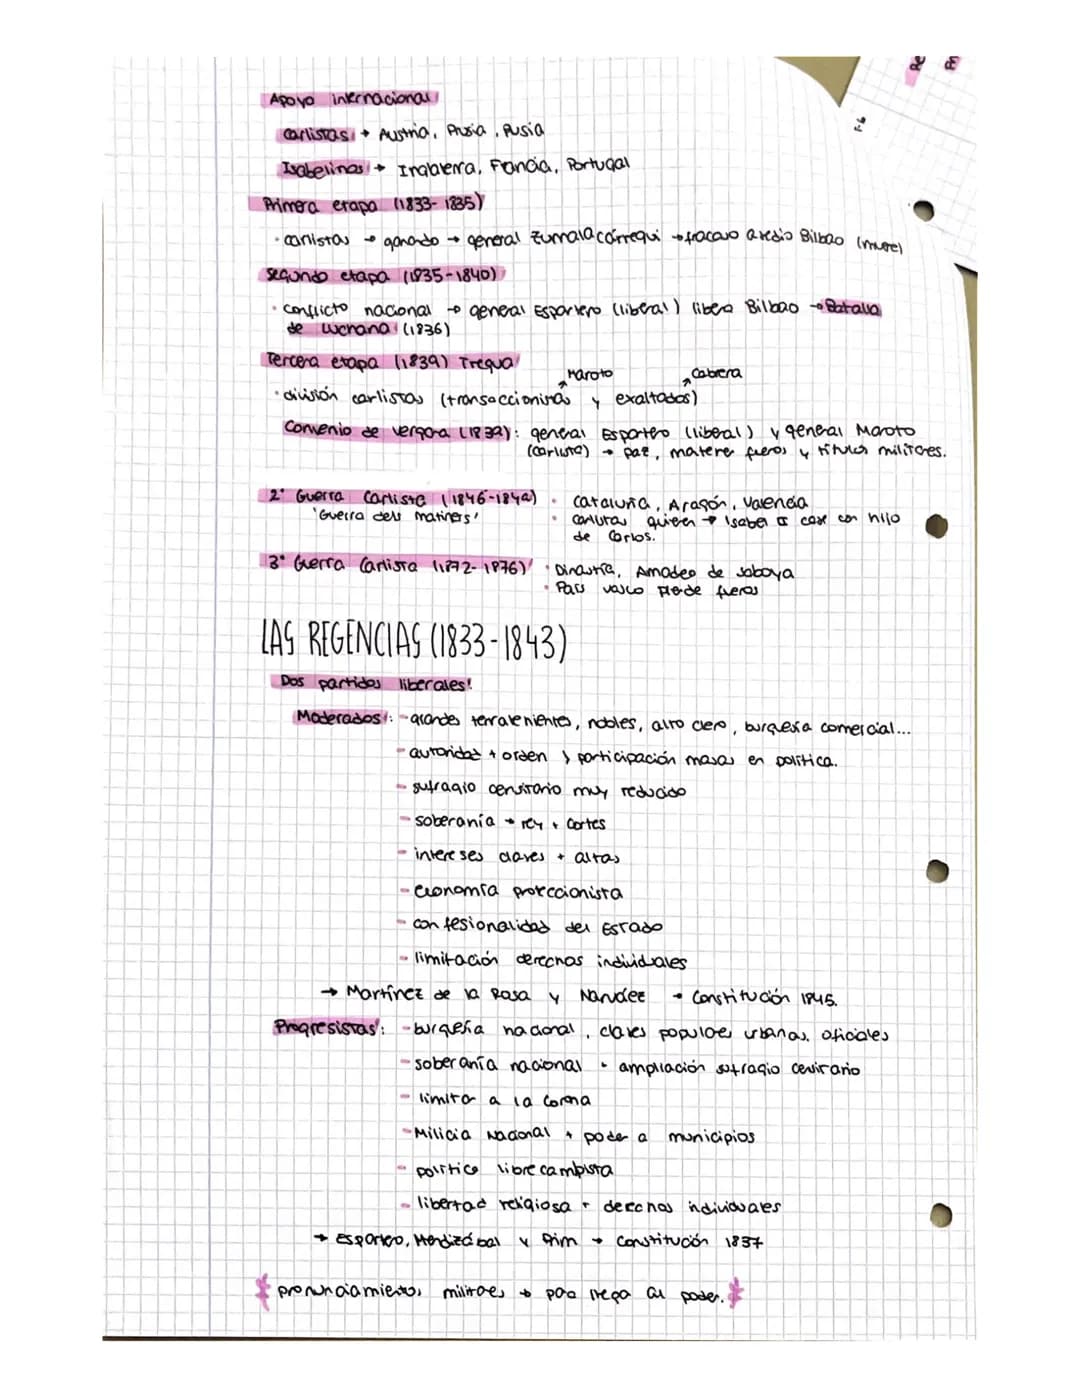 Apoyo internacional
Carlistas → Austria, Prusia, Rusia
Isabelinos → Inglaterra, Francia, Portugal
Primera etapa (1833-1835)
· carlistas → ganando → general Zumalacárregui → fracaso asedio Bilbao (muere)
Segundo etapa (1835-1840)
· conflicto nacional → general Espartero (liberal) libera Bilbao → Batalla
de Luchana (1836)
Tercera etapa (1839) Tregua
Maroto Cabrera
· división carlistas (transaccionistas y exaltados)
Convenio de Vergara (1839): general Espartero (liberal) y general Maroto
(carlista) → paz, matener fueros y títulos militares.
2ª Guerra Carlista (1846-1849) · Cataluña, Aragón, Valencia
'Guerra dels matiners' · carlistas quieren → Isabel II case con hijo
de Carlos.
3ª Guerra Carlista (1872-1876) · Dinastía, Amadeo de Saboya
· País vasco pierde fueros
LAS REGENCIAS (1833-1843)
Dos partidos liberales:
Moderados: - grandes terratenientes, nobles, alto clero, burguesía comercial...
- autoridad + orden y participación masas en política.
- sufragio censitario muy reducido
- soberanía → rey + Cortes
- intereses clases + altas
- economía proteccionista
- confesionalidad del Estado
- limitación derechos individuales
→ Martínez de la Rosa y Narváez → Constitución 1845.
Progresistas: - burguesía nacional, clases populares urbanas, oficiales
- soberanía nacional + ampliación sufragio censitario
- limitar a la Corona
- Milicia Nacional + poder a municipios
- política librecambista
- libertad religiosa + derechos individuales
→ Espartero, Mendizábal y Prim → Constitución 1837
* pronunciamientos militares → para llegar al poder. *